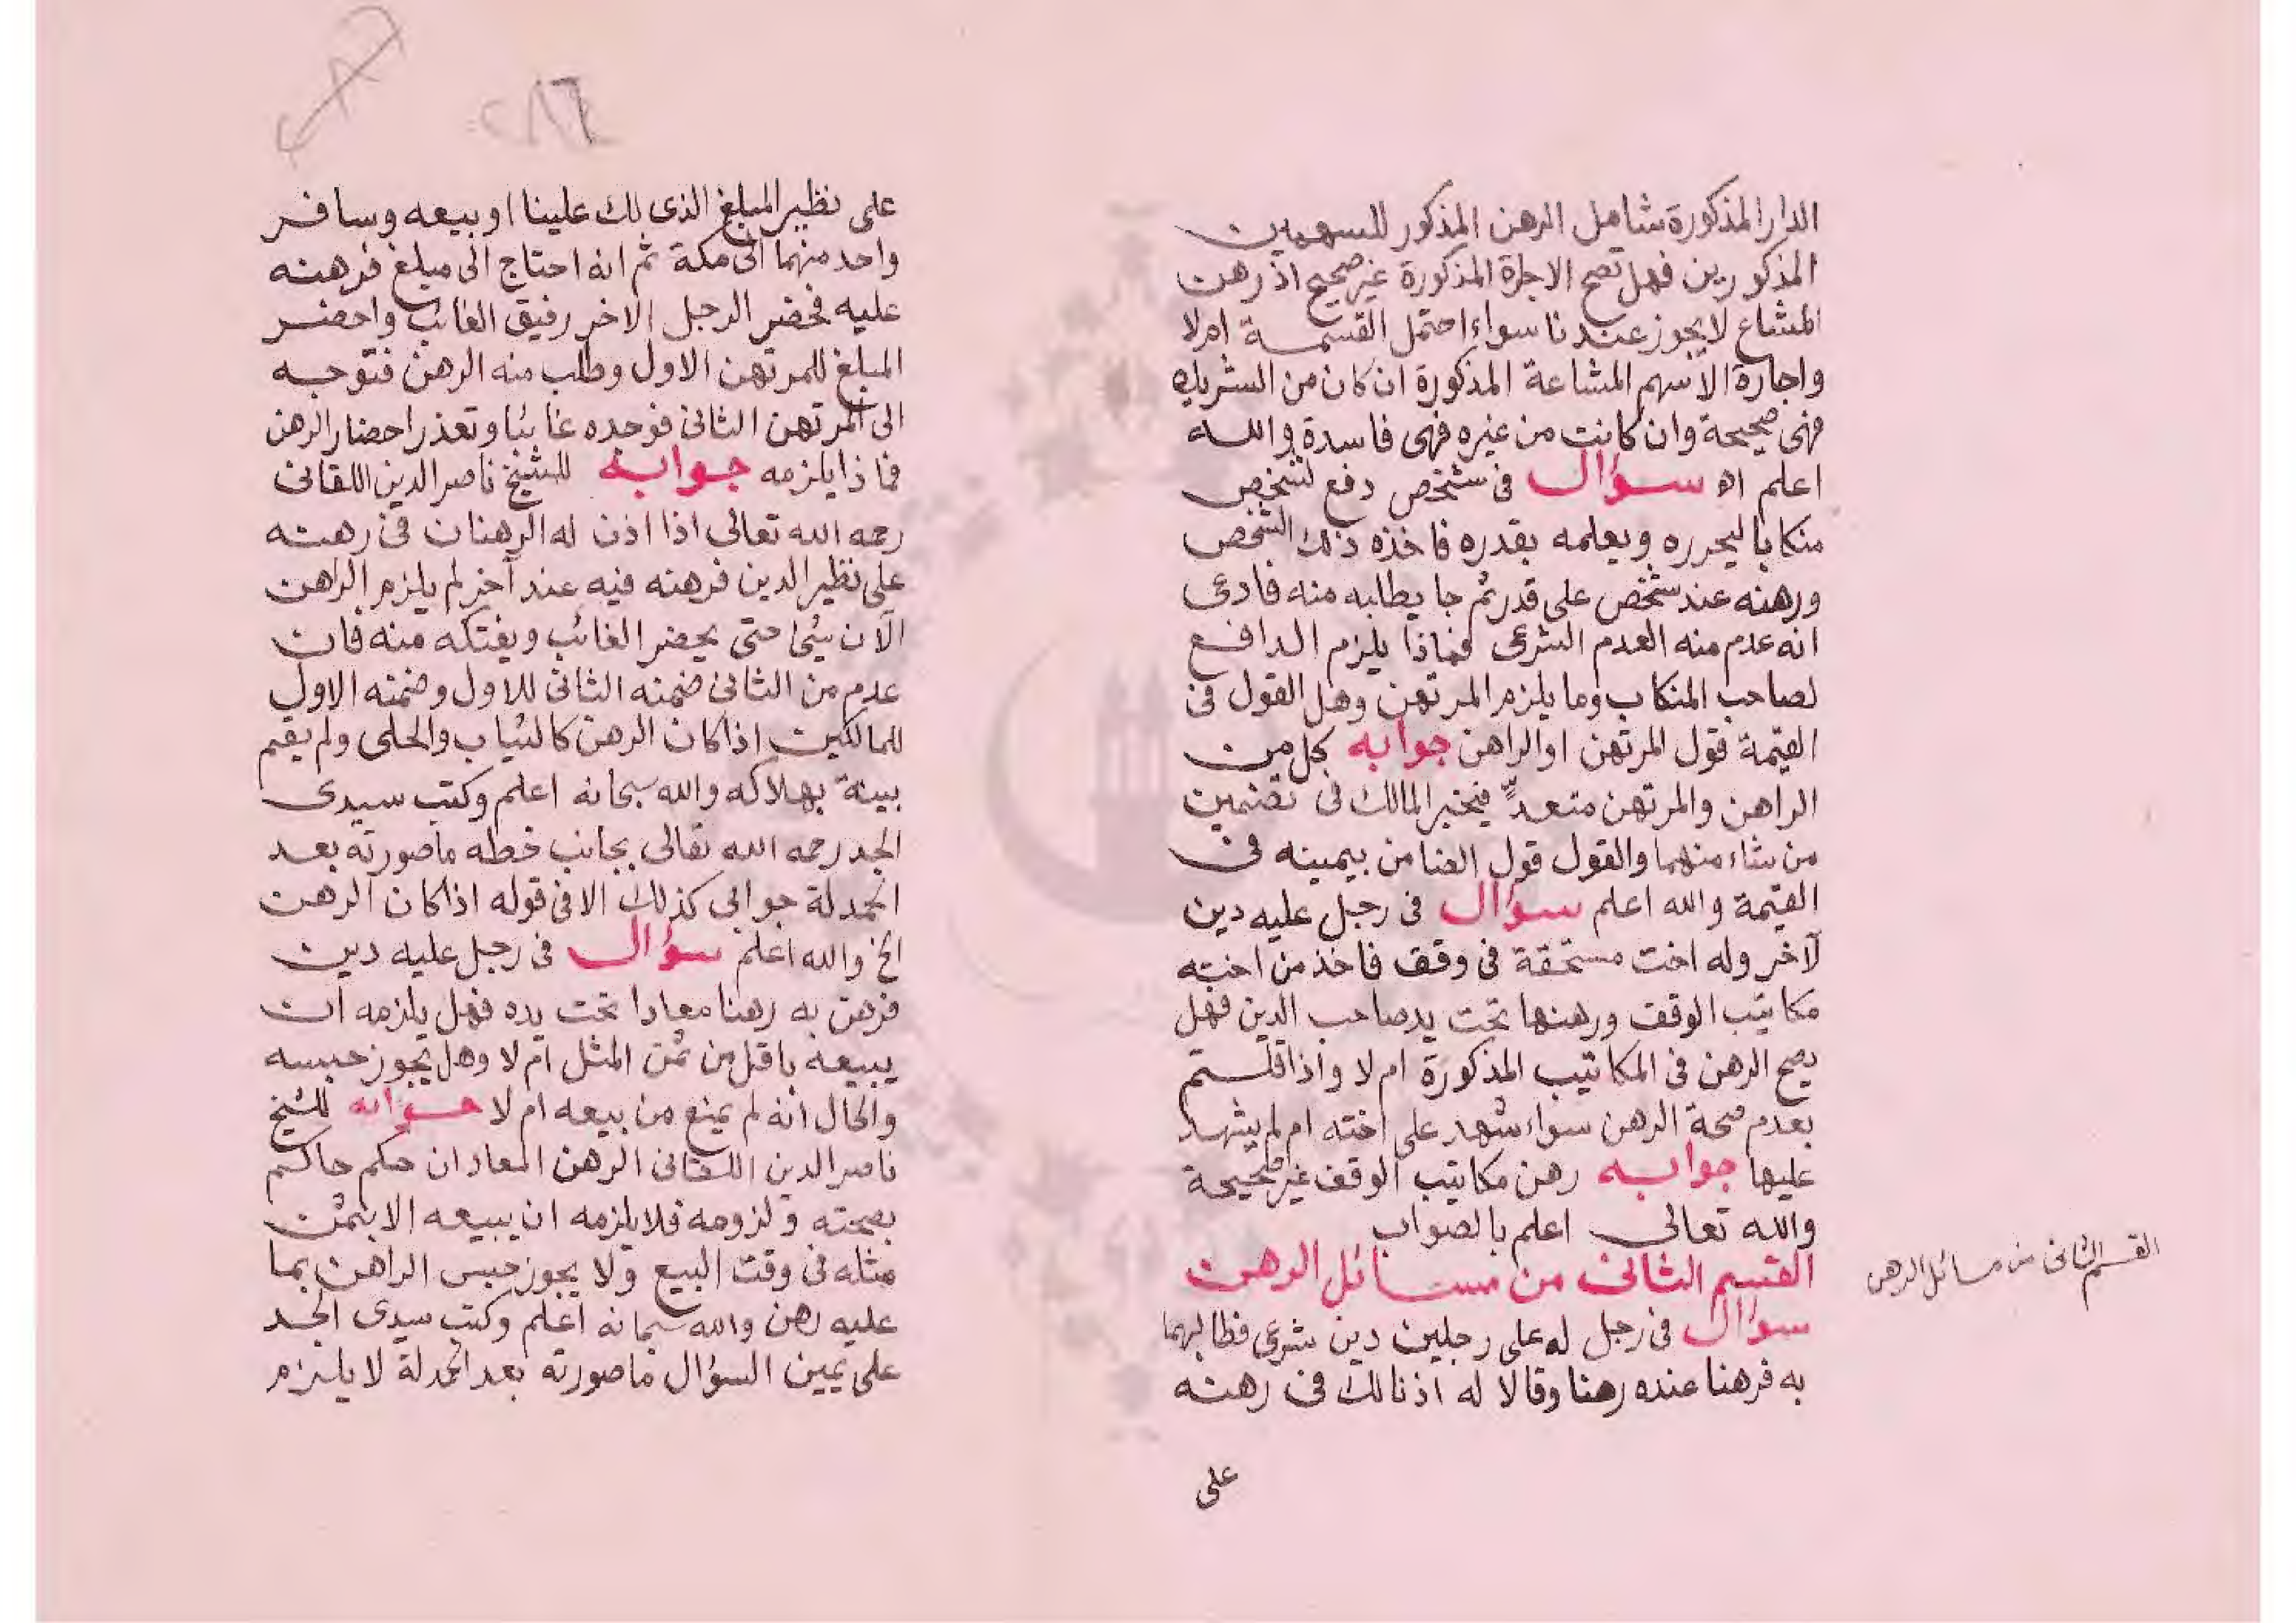 الدار المذكورة شامل الرهن المذكور للسهمين
المذكورين فهل تصح الاجارة المذكورة غير صحيح اذ رهن
المشاع لا يجوز عندنا سواء احتمل القسمة ام لا
واجارة الاسهم المشاعة المذكورة ان كان من الشريك
فهى صحيحة وان كانت من غيره فهى فاسدة والله
اعلم اه سؤال فى شخص دفع لشخص
منكابا ليحرره ويعلمه بقدره فاخذه ذلك الشخص
ورهنه عند شخص على قدر ثم جا يطالبه منه فادعى
انه عدم منه العدم الشرعى فماذا يلزم الدافع
لصاحب المنكاب وما يلزم المرتهن وهل القول فى
القيمة قول المرتهن او الراهن جوابه كل من
الراهن والمرتهن متعدٍّ فيخير المالك فى تضمين
من شاء منهما والقول قول الضامن بيمينه فى
القيمة والله اعلم سؤال فى رجل عليه دين
لآخر وله اخت مستحقة فى وقف فاخذ من اخته
مكاتيب الوقف ورهنها تحت يد صاحب الدين فهل
يصح الرهن فى المكاتيب المذكورة ام لا واذا قلتم
بعدم صحة الرهن سواء شهد على اخته ام لم يشهد
عليها جوابه رهن مكاتيب الوقف غير صحيحة
والله تعالى اعلم بالصواب
القسم الثانى من مسائل الرهن
القسم الثانى من مسائل الرهن
سؤال فى رجل له على رجلين دين شرعى فطالبهما
به فرهنا عنده رهنا وقالا له اذنا لك فى رهنه
على
على نظير المبلغ الذى لك علينا او بيعه وسافر
واحد منهما الى مكة ثم انه احتاج الى مبلغ فرهنه
عليه فحضر الرجل الاخر رفيق الغائب واحضر
المبلغ للمرتهن الاول وطلب منه الرهن فتوجه
الى المرتهن الثانى فوجده غائبا وتعذر احضار الرهن
فماذا يلزمه جوابه للشيخ ناصر الدين اللقانى
رحمه الله تعالى اذا اذن له الرهنان فى رهنه
على نظير الدين فرهنه فيه عند آخر لم يلزم الراهن
الآن شئ حتى يحضر الغائب ويفتكه منه فان
عدم من الثانى ضمنه الثانى للاول وضمنه الاول
للمالكين اذا كان الرهن كالثياب والحلى ولم يقم
بينة بهلاكه والله سبحانه اعلم وكتب سيدى
الجد رحمه الله تعالى بجانب خطه ما صورته بعد
الحمدلة جوابى كذلك الا فى قوله اذا كان الرهن
الخ والله اعلم سؤال فى رجل عليه دين
فرهن به رهنا معادا تحت يده فهل يلزمه ان
يبيعه باقل من ثمن المثل ام لا وهل يجوز حبسه
والحال انه لم يمنع من بيعه ام لا جوابه للشيخ
ناصر الدين اللقانى الرهن المعاد ان حكم حاكم
بصحته ولزومه فلا يلزمه ان يبيعه الا بثمن
مثله فى وقت البيع ولا يجوز حبس الراهن بما
عليه رهن والله سبحانه اعلم وكتب سيدى الجد
على يمين السؤال ما صورته بعد الحمدلة لا يلزم